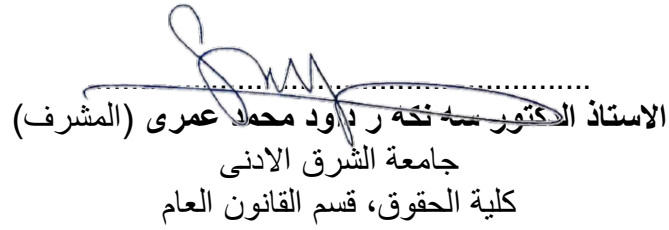 الاستاذ الدكتور سه نكه ر داود محمد عمرى (المشرف)
جامعة الشرق الادنى
كلية الحقوق، قسم القانون العام